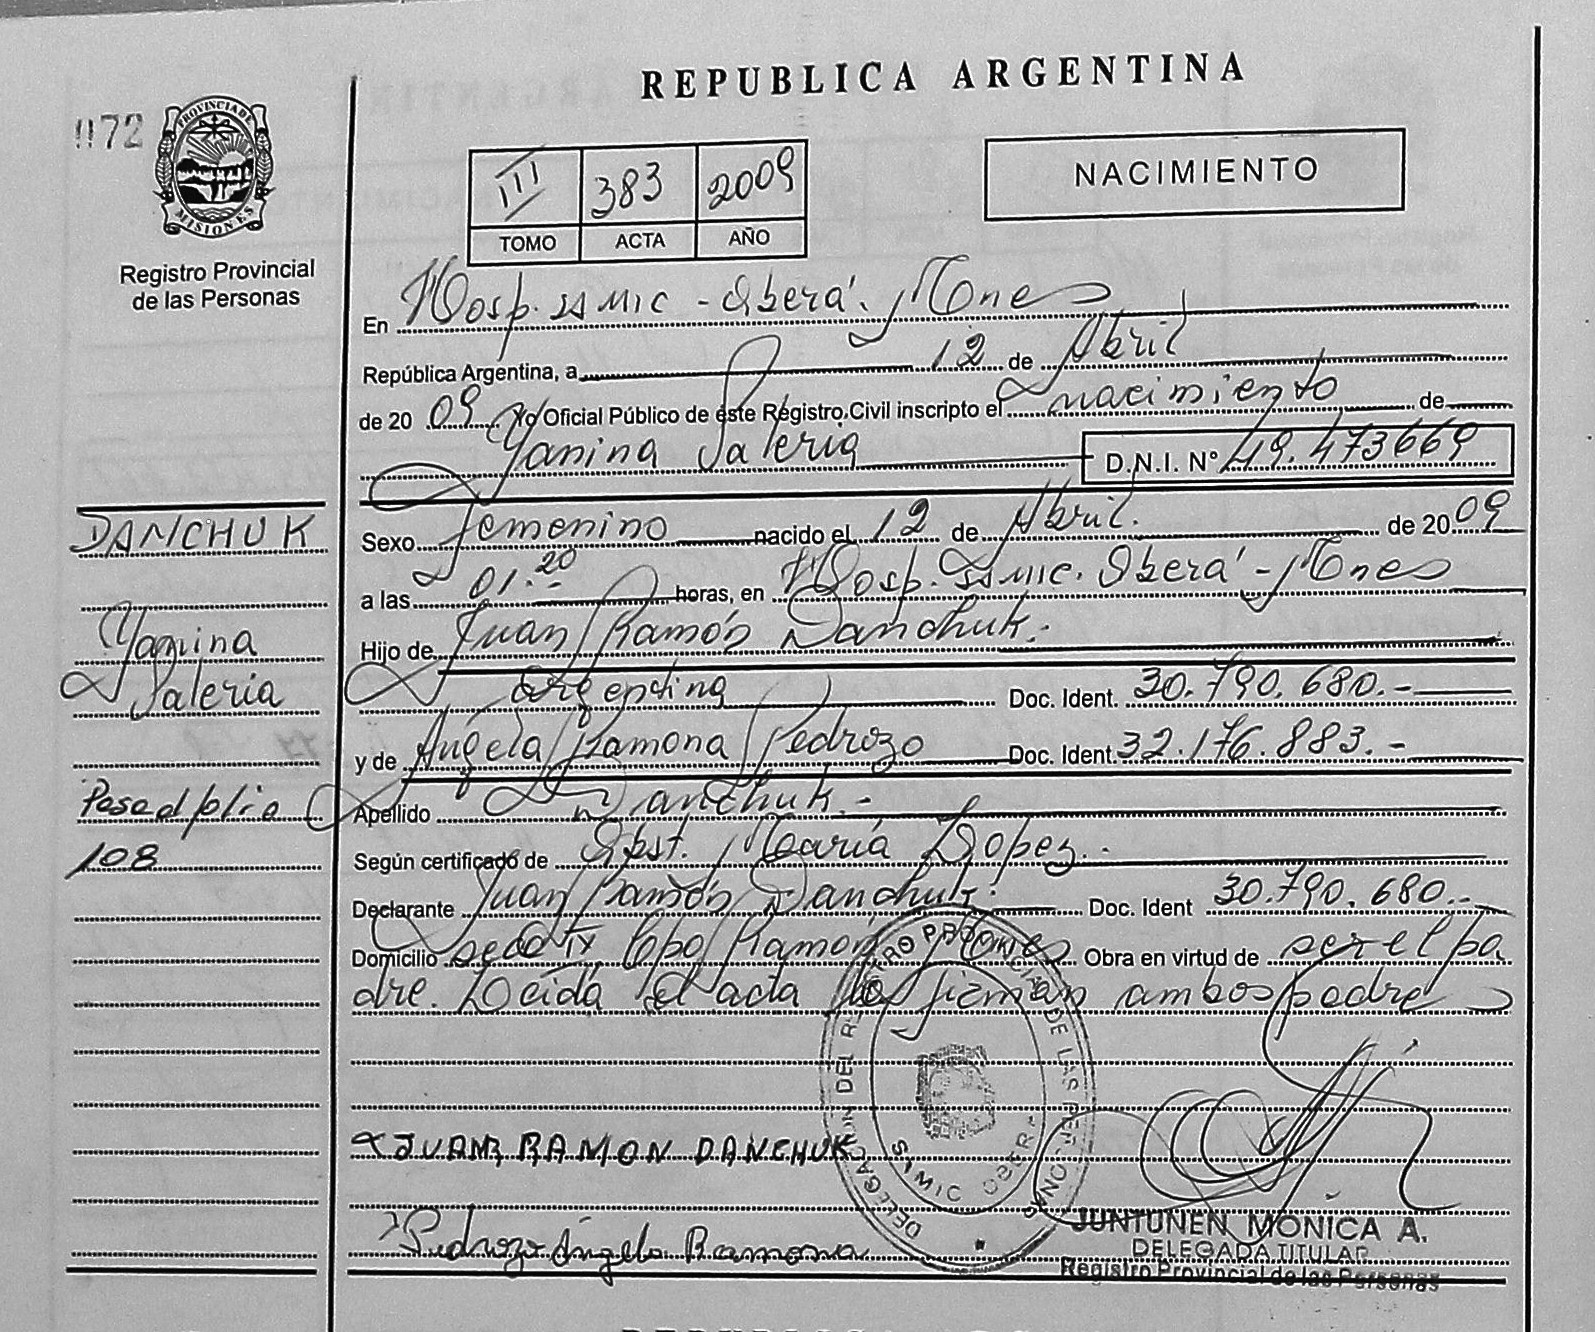 REPUBLICA ARGENTINA
072
PROVINCIA DE MISIONES
Registro Provincial
de las Personas
III 383 2009
TOMO ACTA AÑO
NACIMIENTO
En Hosp. SS MIC - Oberá. Mnes
República Argentina, a 12 de Abril
de 20 09 Yo Oficial Público de este Registro Civil inscripto el nacimiento de
Yanina Valeria D.N.I. N° 49.473669
DANCHUK
Yanina
Valeria
Pase al folio
108
Sexo femenino nacido el 12 de Abril. de 20 09
a las 01.20 horas, en Hosp. SS MIC. Oberá - Mnes
Hijo de Juan Ramón Danchuk.-
Argentina Doc. Ident. 30.790.680.-
y de Angela Ramona Pedrozo Doc. Ident. 32.176.883.-
Apellido Danchuk.-
Según certificado de Obst. María Lopez.-
Declarante Juan Ramón Danchuk. Doc. Ident 30.790.680.-
Domicilio secc IX Cpo Ramón Mnes Obra en virtud de ser el pa
dre. Leida el acta la firman ambos padres
JUAN RAMON DANCHUK
Pedrozo Ángela Ramona
DELEGACION DEL REGISTRO PROVINCIAL DE LAS PERSONAS
SAMIC OBERA
JUNTUNEN MONICA A.
DELEGADA TITULAR
Registro Provincial de las Personas